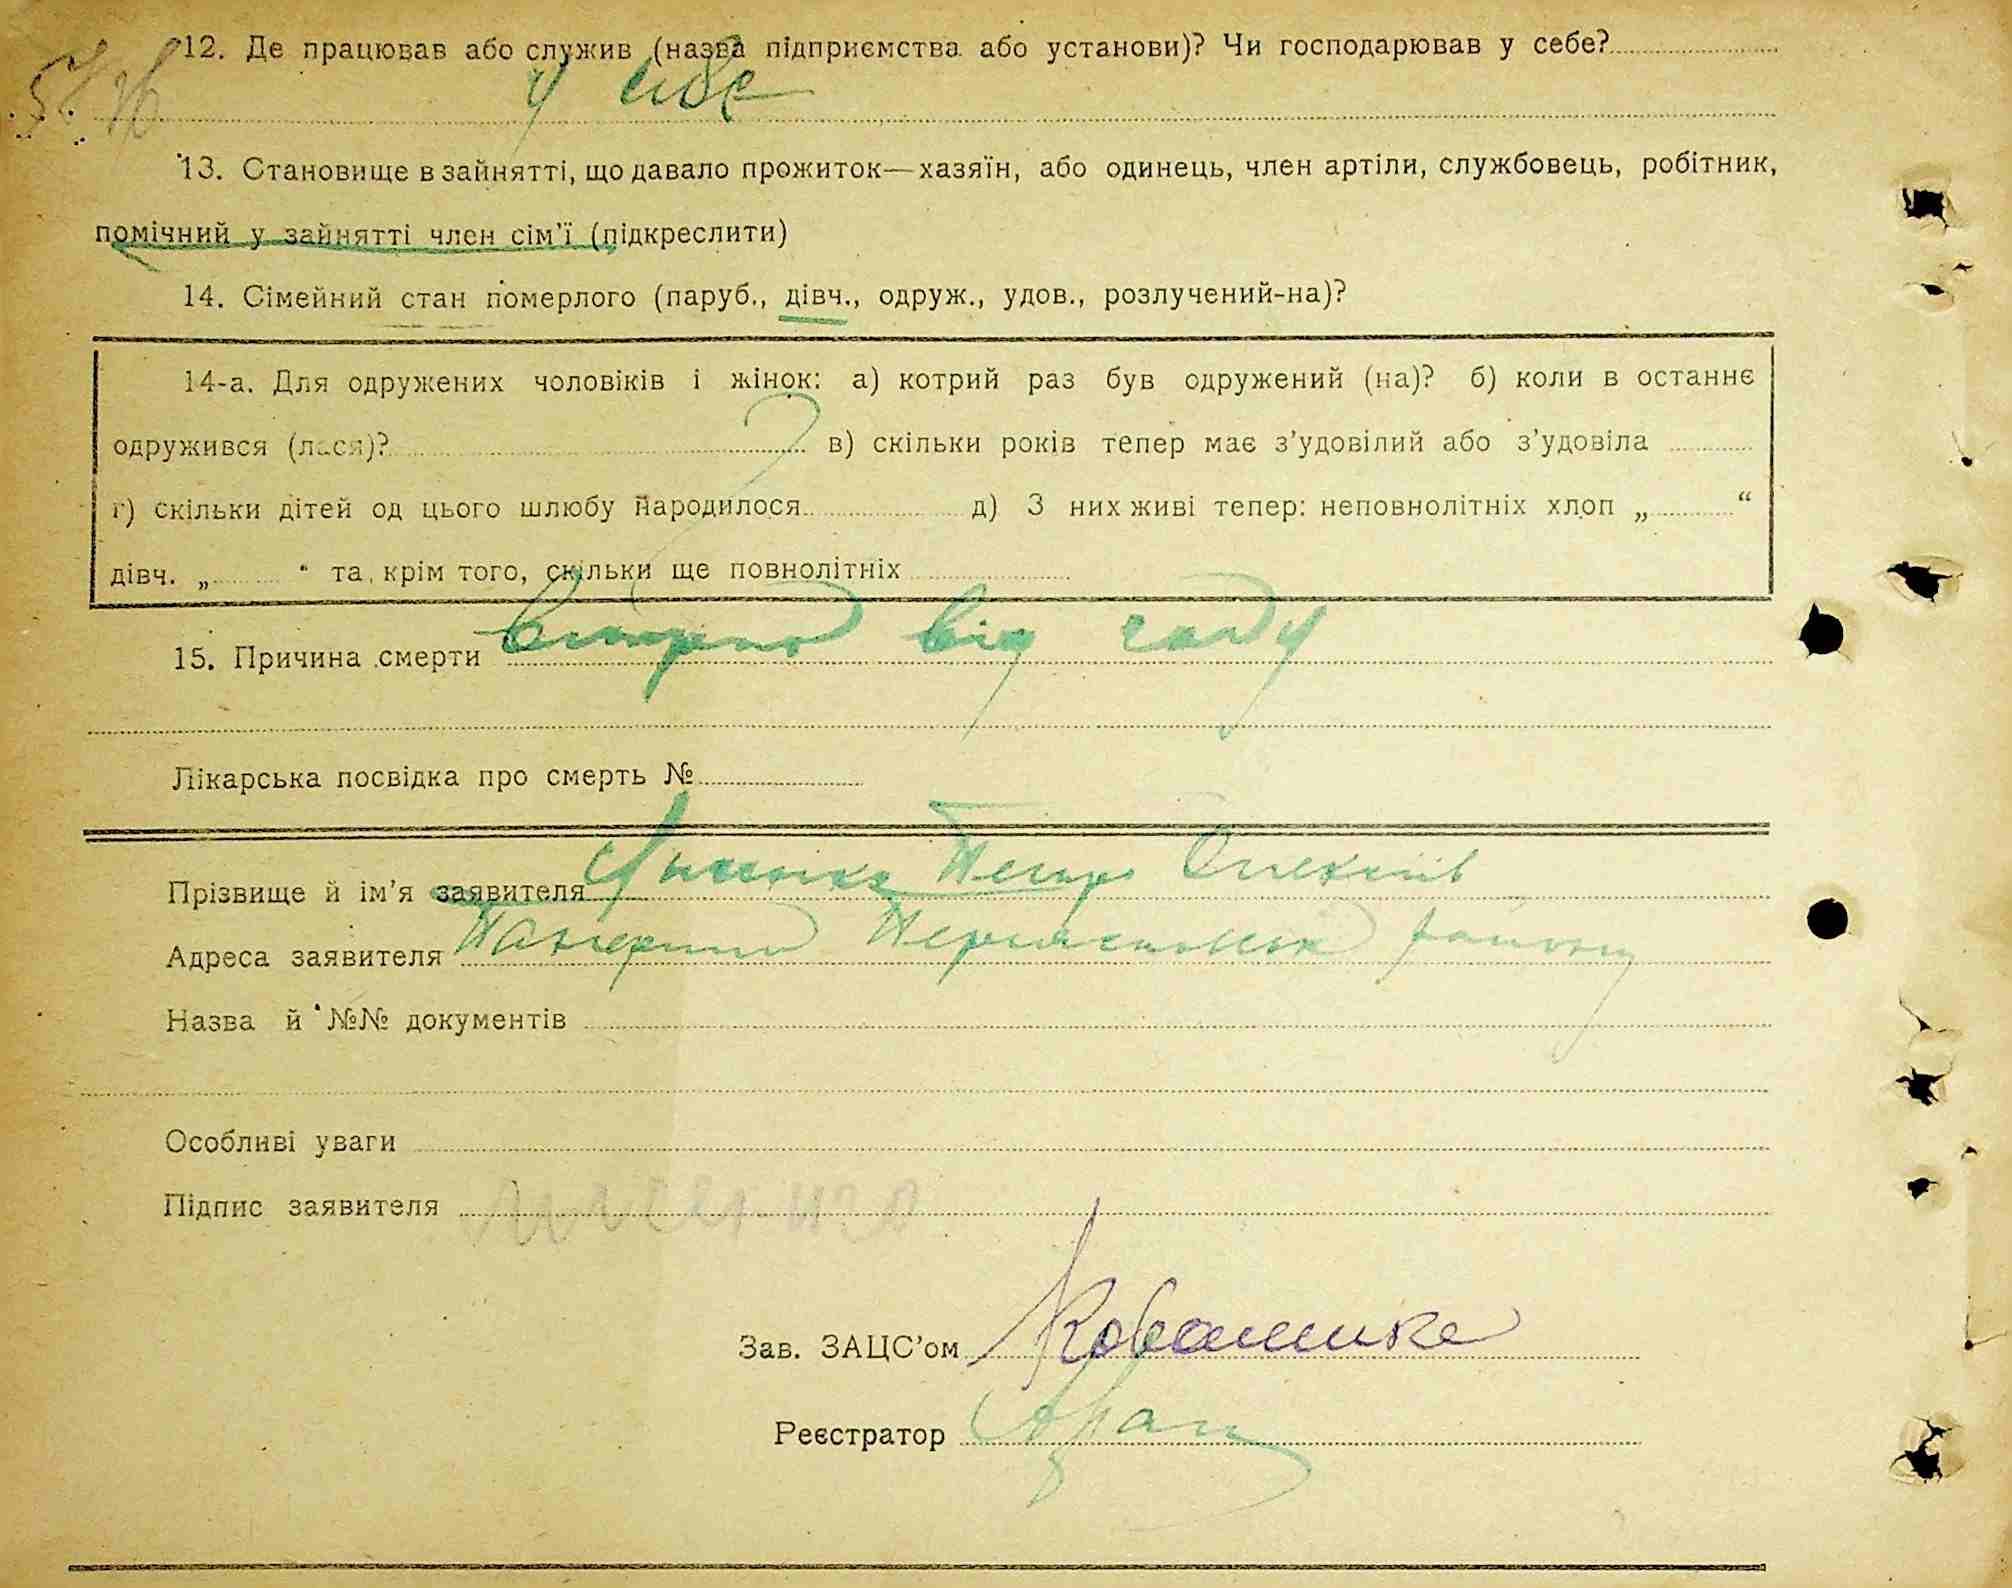 12. Де працював або служив (назва підприємства або установи)? Чи господарював у себе?
у себе
13. Становище в зайнятті, що давало прожиток—хазяїн, або одинець, член артіли, службовець, робітник,
помічний у зайнятті член сім'ї (підкреслити)
14. Сімейний стан померлого (паруб., дівч., одруж., удов., розлучений-на)?
14-а. Для одружених чоловіків і жінок: а) котрий раз був одружений (на)? б) коли в останнє
одружився (лася)? в) скільки років тепер має з'удовілий або з'удовіла
г) скільки дітей од цього шлюбу народилося д) З них живі тепер: неповнолітніх хлоп „ “
дівч. „ “ та, крім того, скільки ще повнолітніх
15. Причина смерти від
Лікарська посвідка про смерть №
Прізвище й ім'я заявителя Петро
Адреса заявителя району
Назва й №№ документів
Особливі уваги
Підпис заявителя
Зав. ЗАЦС'ом
Реєстратор